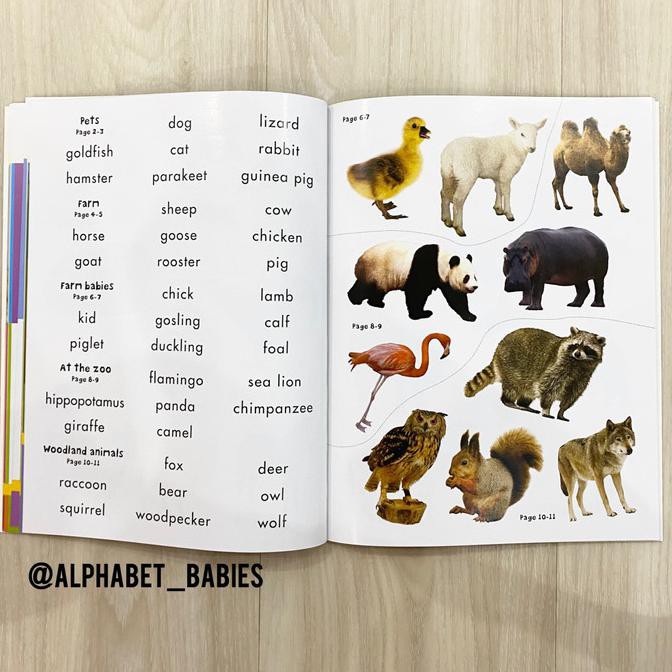 Pets dog lizard
Page 2-3
goldfish cat rabbit
hamster parakeet guinea pig
Farm sheep cow
Page 4-5
horse goose chicken
goat rooster pig
Farm babies chick lamb
Page 6-7
kid gosling calf
piglet duckling foal
At the zoo flamingo sea lion
Page 8-9
hippopotamus panda chimpanzee
giraffe camel
Woodland animals fox deer
Page 10-11
raccoon bear owl
squirrel woodpecker wolf
Page 6-7
Page 8-9
Page 10-11
@ALPHABET_BABIES